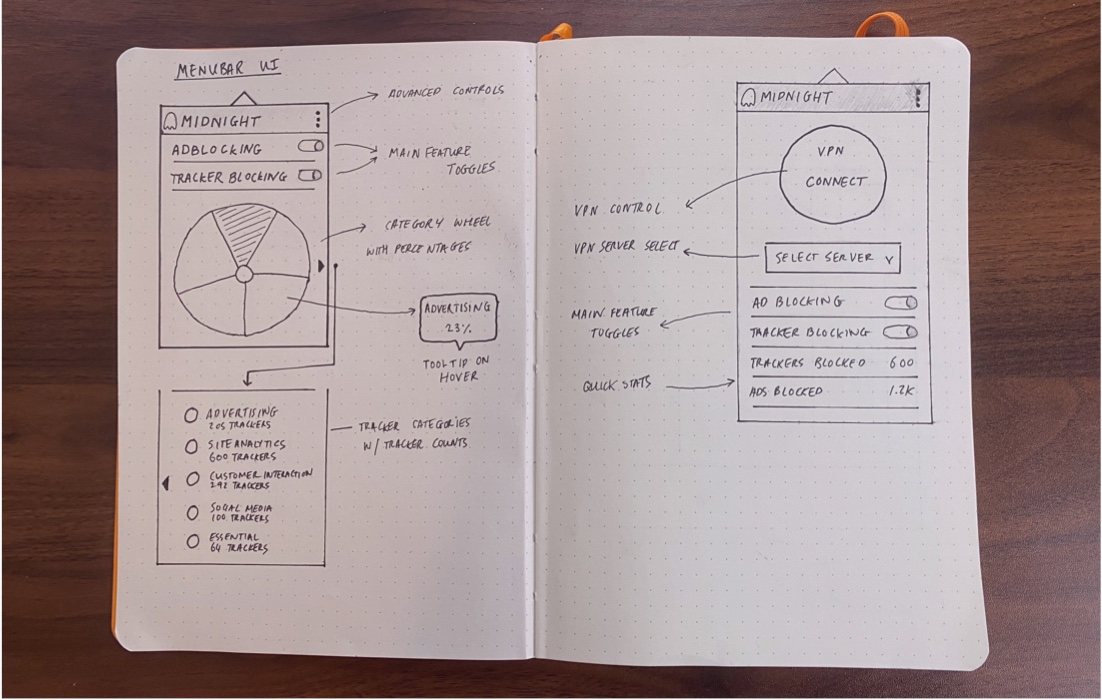 MENUBAR UI
MIDNIGHT
ADBLOCKING
TRACKER BLOCKING
ADVANCED CONTROLS
MAIN FEATURE
TOGGLES
CATEGORY WHEEL
WITH PERCENTAGES
ADVERTISING
23%
TOOLTIP ON
HOVER
ADVERTISING
205 TRACKERS
SITE ANALYTICS
600 TRACKERS
CUSTOMER INTERACTION
292 TRACKERS
SOCIAL MEDIA
100 TRACKERS
ESSENTIAL
64 TRACKERS
TRACKER CATEGORIES
W/ TRACKER COUNTS
MIDNIGHT
VPN
CONNECT
VPN CONTROL
VPN SERVER SELECT
SELECT SERVER
MAIN FEATURE
TOGGLES
AD BLOCKING
TRACKER BLOCKING
TRACKERS BLOCKED 600
QUICK STATS
ADS BLOCKED 1.2K